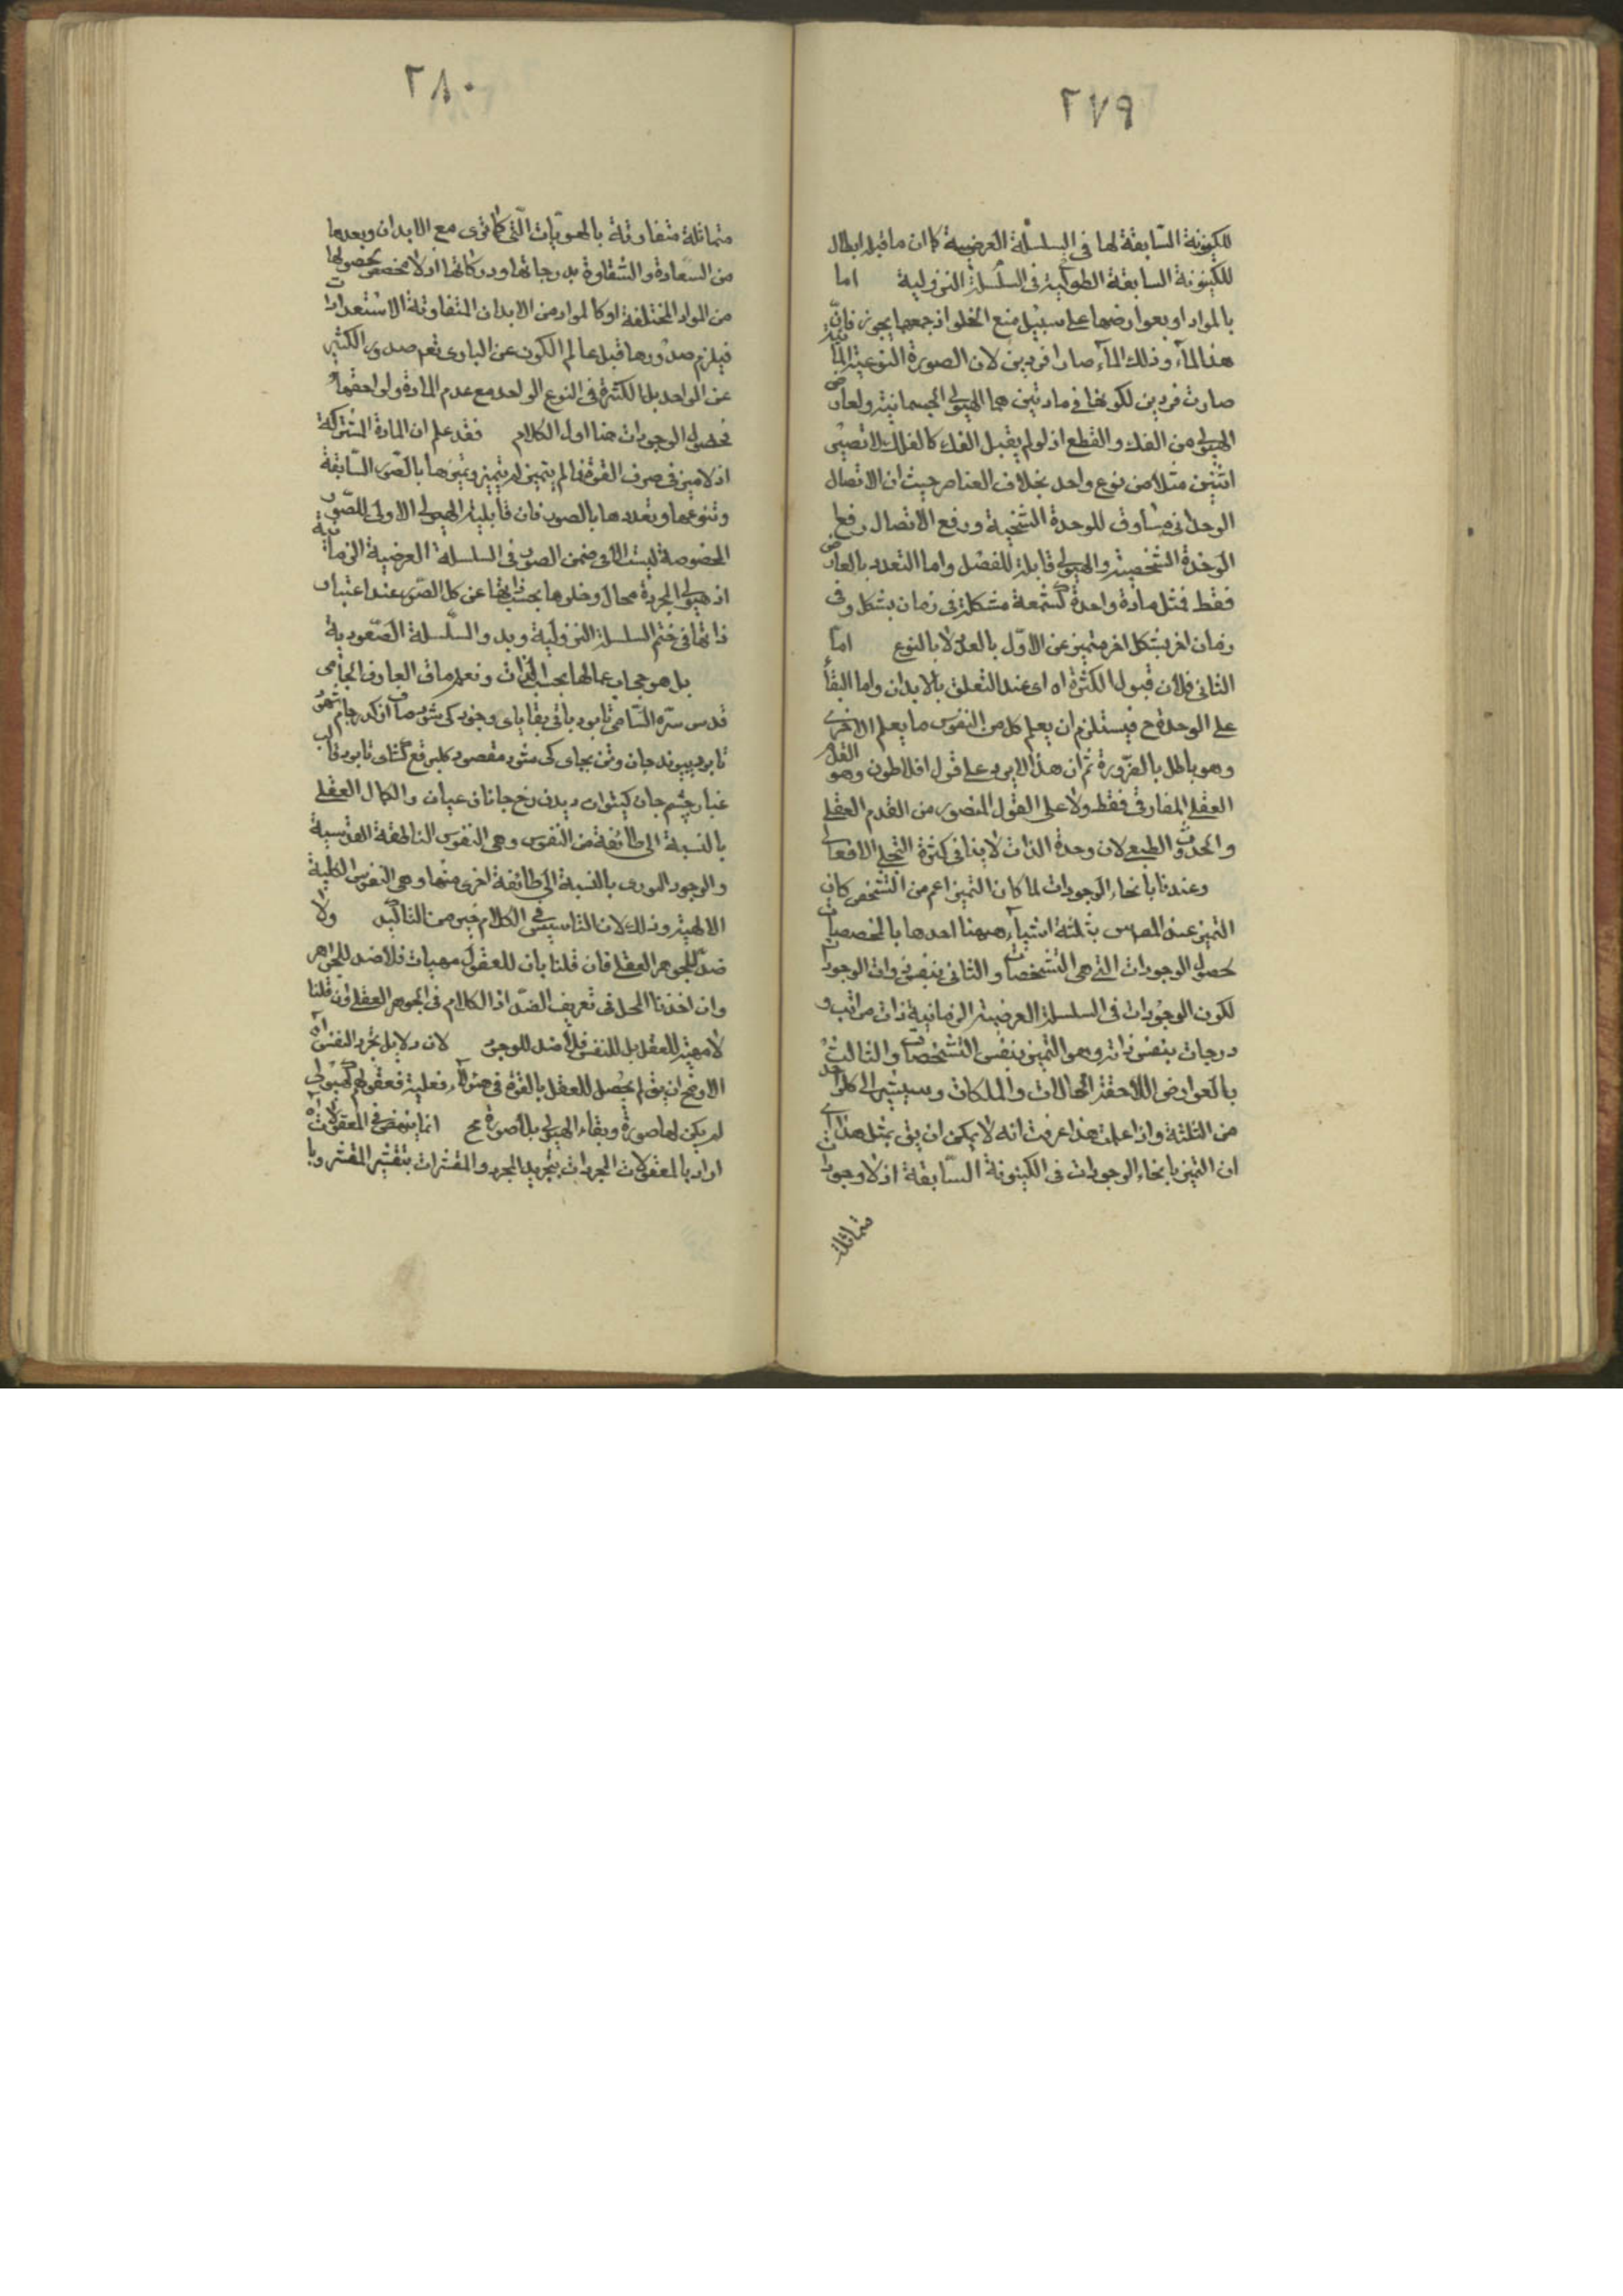 ٢٧٩
للكينونة السّابقة لها فى السلسلة العرضية كما ان ما قبله ابطال
للكينونة السابقة الطولية فى السلسلة النزولية اما
بالمواد او بعوارضها على سبيل منع الخلو اذ جمعهما يجوز فانّ
هذا المآء وذلك المآء صارا فردين لان الصورة النوعية المائية
صارت فردين لكونها فى مادتين هما الهيولى الجسمانية ولعارض
الهيولى من الفك والقطع اذ لو لم يقبل الفك كالفلك لا تصير
اثنين مثلا من نوع واحد بخلاف العناصر حيث ان الاتصال
الوحدانى مساوق للوحدة الشخصية ورفع الاتصال رفع
الوحدة الشخصية والهيولى قابلة للفصل واما التعدد بالعارض
فقط فمثل مادة واحدة كشمعة مشكلة فى زمان بشكل وفى
زمان اخر بشكل اخر متميز عن الاوّل بالعدد لا بالنوع امّا
الثانى فلان قبول الكثرة اه اى عند التعلق بالابدان واما البقآء
على الوحدة ح فيستلزم ان يعلم كل من النفوس ما يعلم الاخرى
وهو باطل بالضّرورة ثم ان هذا لا يرد على قول افلاطون وهو القدم
العقلى المفارقى فقط ولا على القول المنصور من القدم العقلى
والحدوث الطبعى لان وحدة الذات لا ينافى كثرة التجلى الافعالى
وعندنا بانحاء الوجودات لما كان التميز اعم من التشخص كان
التميز عند المصنف بثلثة اشيآء ههنا احدها بالمخصصات
لحصول الوجودات التى هى التشخصات والثانى بنفس ذوات الوجودات
لكون الوجودات فى السلسلة العرضية الزمانية ذات مراتب و
درجات بنفس ذاته وهو التميز بنفس التشخصات والثالث
بالعوارض اللاحقة كالحالات والملكات وسيشير الى كل واحد
من الثلثة واذا علمت هذا عرفت انه لا يمكن ان يق بمثل هذا اى
ان التميز بانحاء الوجودات فى الكينونة السّابقة اذ لا وجودات
متماثلة
٢٨٠
متماثلة متفاوتة بالهويّات الّتى كما نرى مع الابدان وبعدها
من السّعادة والشقاوة بدرجاتها ودركاتها اذ لا مخصص لحصولها
من المواد المختلفة او كالمواد من الابدان المتفاوتة الاستعدادات
فيلزم صدورها قبل عالم الكون عن البارى تعم صدور الكثير
عن الواحد بل الكثرة فى النوع الواحد مع عدم المادة ولواحقها
فحصول الوجودات هنا اول الكلام فقد علم ان المادة المشتركة
اذ لا ميز فى صرف القوة فما لم يتميز لم يتميز وتميزها بالصّور السّابقة
وتنوعها وتعددها بالصور فان قابلية الهيولى الاولى للصّور
المخصوصة ليست الا فى ضمن الصور فى السلسلة العرضية الزمانية
اذ هيولى المجردة محال وخلوها بحسب ذاتها عن كل الصّور عند اعتبار
ذاتها فى ختم السلسلة النزولية وبدو السّلسلة الصّعودية
بل هو حجاب عمالها بحسب الذات ونعم ما ق العارف الجامى
قدس سرّه السّامى تا بود باقى بقاياى وجود كى شود صاف از كدر جام شهود
تا بود پيوند جان وتن بجاى كى شود مقصود كل برقع گشاى تا بود قالب
غبار چشم جان كى توان ديدن رخ جانان عيان والكمال العقلى
بالنسبة الى طائفة من النفوس وهى النفوس الناطقة القدسية
والوجود النورى بالنسبة الى طائفة اخرى منها وهى النفوس الكلية
الالهية وذلك لان التاسيس فى الكلام خير من التاكيد ولا
ضد للجوهر العقلى فان قلنا بان للعقول مهيات فلا ضد للجواهر
وان اخذنا المحل فى تعريف الضّد اذ الكلام فى الجوهر العقلى وان قلنا
لا مهية للعقل بل للنفس فلا ضد للوجود لان دلايل تجرد النفس اه
الاوضح ان يق لم يحصل للعقل بالقوة فى فعلية فعقولهم كهيولى
لم يكن لها صورة وبقاء الهيولى بلا صورة مح انما ينهض فى المعقولات اه
اراد بالمعقولات المجردات بتجريد المجرد والمقشرات بتقشير المقشر وبا